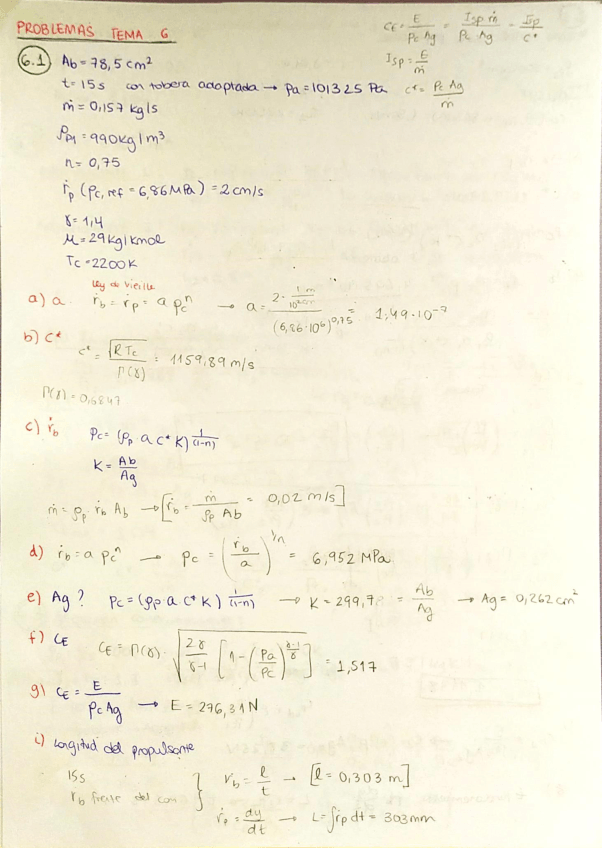 PROBLEMAS TEMA 6
C_E = E / (Pc Ag) = Isp ṁ / (Pc Ag) = Isp / c*
6.1 Ab = 78,5 cm²
Isp = E / ṁ
t = 15 s con tobera adaptada → Pa = 101325 Pa
c* = Pc Ag / ṁ
ṁ = 0,157 kg/s
ρp = 990 kg/m³
n = 0,75
ṙp (Pc, ref = 6,86 MPa) = 2 cm/s
γ = 1,4
M = 29 kg/kmol
Tc = 2200 K
Ley de Vieille
a) a. ṙb = ṙp = a pcⁿ → a = 2 · (1 m / 10² cm) / (6,86 · 10⁶)^0,75 = 1,49 · 10⁻⁷
b) c*
c* = √(R Tc) / Γ(γ) = 1159,89 m/s
Γ(γ) = 0,6847
c) ṙb Pc = (ρp a c* K)^(1/(1-n))
K = Ab / Ag
ṁ = ρp · ṙb Ab → [ṙb = ṁ / (ρp Ab) = 0,02 m/s]
d) ṙb = a pcⁿ → Pc = (ṙb / a)^(1/n) = 6,952 MPa
e) Ag? Pc = (ρp a c* K)^(1/(1-n)) → K = 299,78 = Ab / Ag → Ag = 0,262 cm²
f) C_E C_E = Γ(γ) · √(2γ/(γ-1) [1 - (Pa/Pc)^((γ-1)/γ)]) = 1,517
g) C_E = E / (Pc Ag) → E = 276,31 N
i) Longitud del propulsante
15 s
rb del } Vb = l / t → [l = 0,303 m]
ṙp = dy / dt → L = ∫ṙp dt = 303 mm